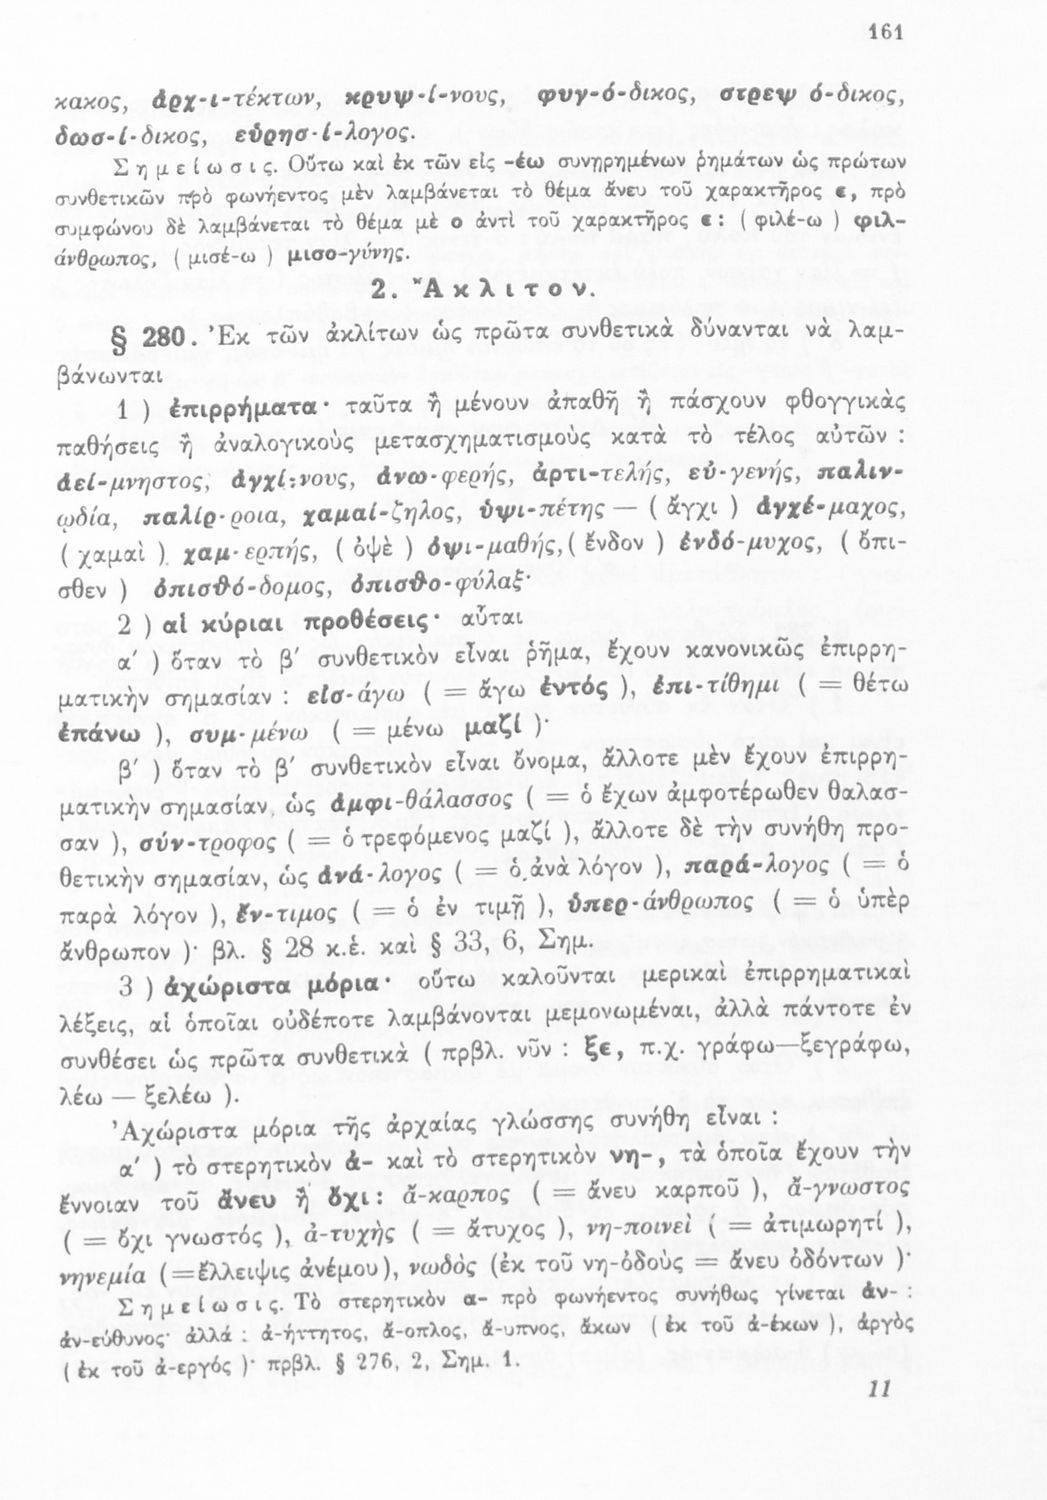 161
κακος, ἀρχ-ι-τέκτων, κρυψ-ί-νους, φυγ-ό-δικος, στρεψ ό-δικος,
δωσ-ί-δικος, εὑρησ-ί-λογος.
Σημείωσις. Οὕτω καὶ ἐκ τῶν εἰς -έω συνῃρημένων ῥημάτων ὡς πρώτων
συνθετικῶν πρὸ φωνήεντος μὲν λαμβάνεται τὸ θέμα ἄνευ τοῦ χαρακτῆρος ε, πρὸ
συμφώνου δὲ λαμβάνεται τὸ θέμα μὲ ο ἀντὶ τοῦ χαρακτῆρος ε: ( φιλέ-ω ) φιλ-
άνθρωπος, ( μισέ-ω ) μισο-γύνης.
2. Ἄκλιτον.
§ 280. Ἐκ τῶν ἀκλίτων ὡς πρῶτα συνθετικὰ δύνανται νὰ λαμ-
βάνωνται
1 ) ἐπιρρήματα· ταῦτα ἢ μένουν ἀπαθῆ ἢ πάσχουν φθογγικὰς
παθήσεις ἢ ἀναλογικοὺς μετασχηματισμοὺς κατὰ τὸ τέλος αὐτῶν :
ἀεί-μνηστος, ἀγχί-νους, ἀνω-φερής, ἀρτι-τελής, εὐ-γενής, παλιν-
ῳδία, παλίρ-ροια, χαμαί-ζηλος, ὑψι-πέτης — ( ἄγχι ) ἀγχέ-μαχος,
( χαμαὶ ) χαμ-ερπής, ( ὀψὲ ) ὀψι-μαθής, ( ἔνδον ) ἐνδό-μυχος, ( ὄπι-
σθεν ) ὀπισθό-δομος, ὀπισθο-φύλαξ·
2 ) αἱ κύριαι προθέσεις· αὗται
α′ ) ὅταν τὸ β′ συνθετικὸν εἶναι ῥῆμα, ἔχουν κανονικῶς ἐπιρρη-
ματικὴν σημασίαν : εἰσ-άγω ( = ἄγω ἐντός ), ἐπι-τίθημι ( = θέτω
ἐπάνω ), συμ-μένω ( = μένω μαζί )·
β′ ) ὅταν τὸ β′ συνθετικὸν εἶναι ὄνομα, ἄλλοτε μὲν ἔχουν ἐπιρρη-
ματικὴν σημασίαν, ὡς ἀμφι-θάλασσος ( = ὁ ἔχων ἀμφοτέρωθεν θαλασ-
σαν ), σύν-τροφος ( = ὁ τρεφόμενος μαζί ), ἄλλοτε δὲ τὴν συνήθη προ-
θετικὴν σημασίαν, ὡς ἀνά-λογος ( = ὁ ἀνὰ λόγον ), παρά-λογος ( = ὁ
παρὰ λόγον ), ἔν-τιμος ( = ὁ ἐν τιμῇ ), ὑπερ-άνθρωπος ( = ὁ ὑπὲρ
ἄνθρωπον )· βλ. § 28 κ.ἑ. καὶ § 33, 6, Σημ.
3 ) ἀχώριστα μόρια· οὕτω καλοῦνται μερικαὶ ἐπιρρηματικαὶ
λέξεις, αἱ ὁποῖαι οὐδέποτε λαμβάνονται μεμονωμέναι, ἀλλὰ πάντοτε ἐν
συνθέσει ὡς πρῶτα συνθετικὰ ( πρβλ. νῦν : ξε, π.χ. γράφω—ξεγράφω,
λέω — ξελέω ).
Ἀχώριστα μόρια τῆς ἀρχαίας γλώσσης συνήθη εἶναι :
α′ ) τὸ στερητικὸν ἀ- καὶ τὸ στερητικὸν νη-, τὰ ὁποῖα ἔχουν τὴν
ἔννοιαν τοῦ ἄνευ ἢ ὄχι: ἄ-καρπος ( = ἄνευ καρποῦ ), ἄ-γνωστος
( = ὄχι γνωστός ), ἀ-τυχὴς ( = ἄτυχος ), νη-ποινεὶ ( = ἀτιμωρητί ),
νηνεμία (=ἔλλειψις ἀνέμου), νωδὸς (ἐκ τοῦ νη-όδοὺς = ἄνευ ὀδόντων )·
Σημείωσις. Τὸ στερητικὸν α- πρὸ φωνήεντος συνήθως γίνεται ἀν- :
ἀν-εύθυνος· ἀλλά : ἀ-ήττητος, ἄ-οπλος, ἄ-υπνος, ἄκων ( ἐκ τοῦ ἀ-έκων ), ἀργὸς
( ἐκ τοῦ ἀ-εργός )· πρβλ. § 276, 2, Σημ. 1.
11